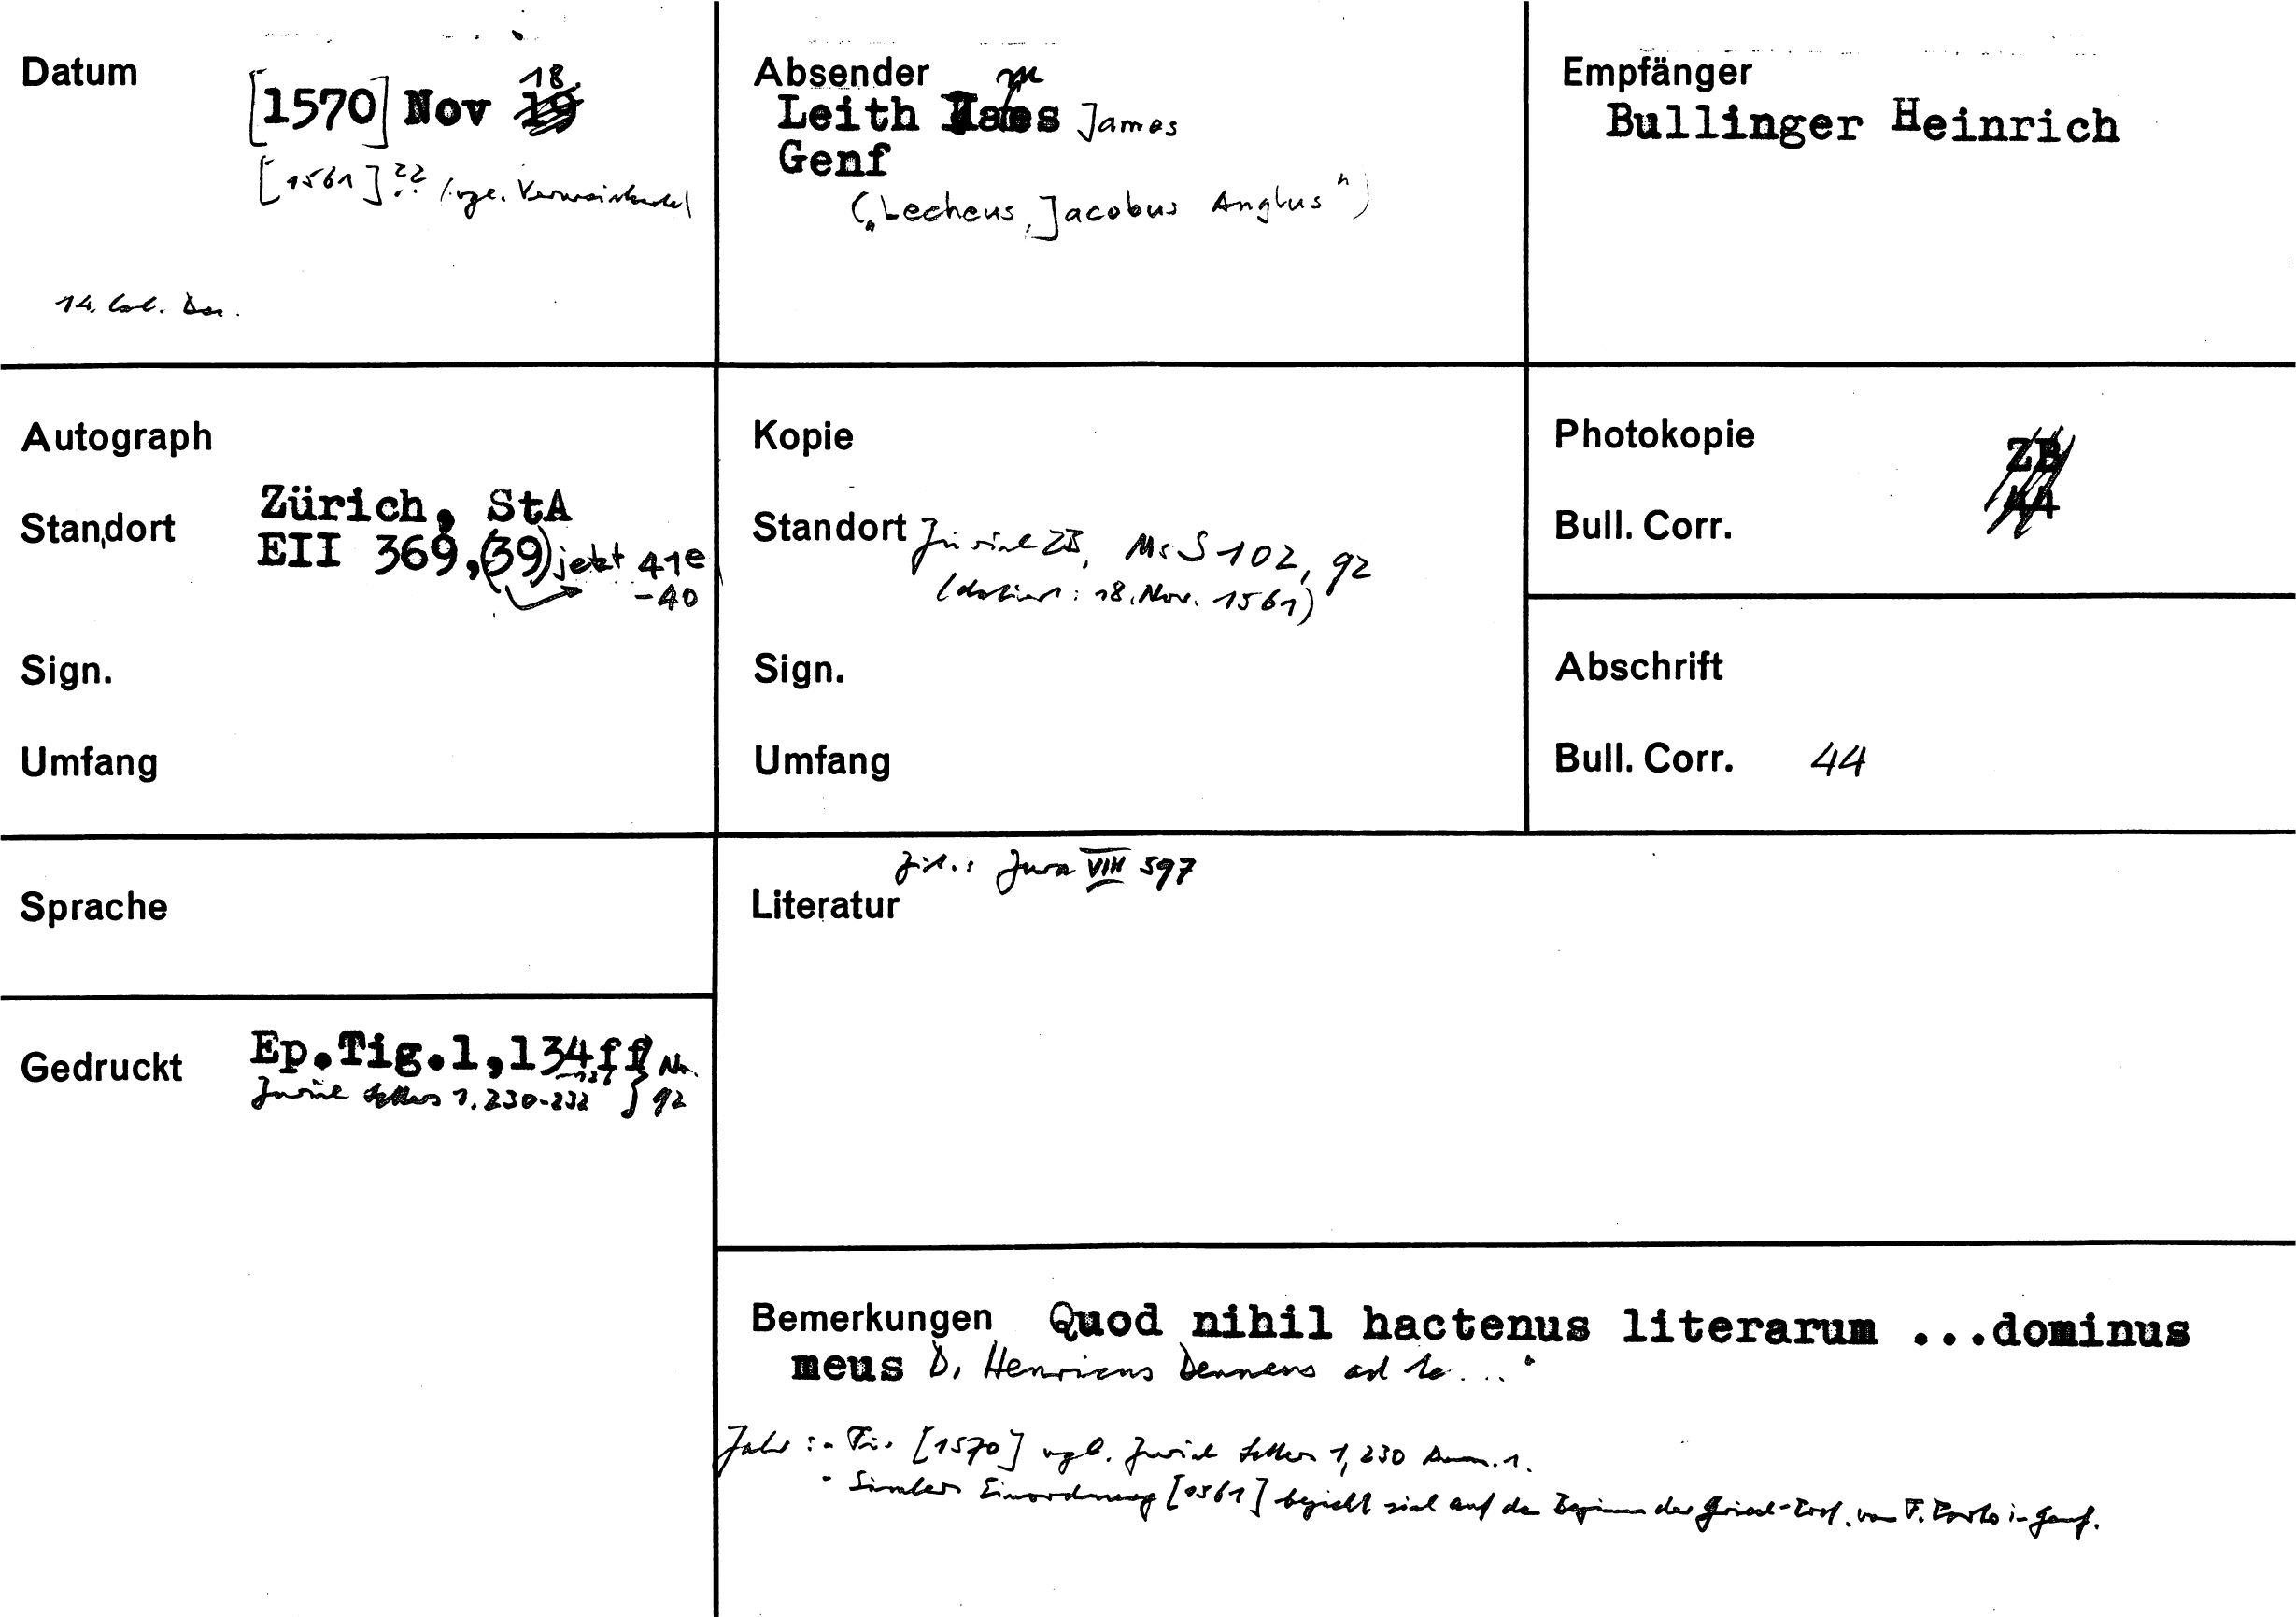 Datum
[1570] Nov 18.
[1561]?? (vgl. Verweiszettel
14. Cal. Dec.
Absender
Leith James
Genf
(„Lecheus, Jacobus Anglus")
Empfänger
Bullinger Heinrich
Autograph
Standort Zürich, StA
EII 369,(39) jetzt 41e
-40
Sign.
Umfang
Kopie
Standort Zürich ZB, Ms S 102, 92
(datiert: 18. Nov. 1561)
Sign.
Umfang
Photokopie ZB
Bull. Corr. 44
Abschrift
Bull. Corr. 44
Sprache
Gedruckt Ep.Tig.1,134ff No.
Zurich Letters 1, 230-232 } 92
Zit.: Zürich VIII 597
Literatur
Bemerkungen Quod nihil hactenus literarum ...dominus
meus D. Henricus ad te...
Jahr: - Für [1570] vgl. Zurich Letters 1, 230 Anm. 1.
- Simlers Einordnung [1561] bezieht sich auf den Beginn der Griech-Prof. von F. Porto in Genf.